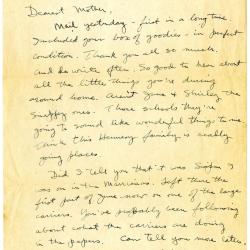 Dearest Mother,
Mail yesterday - first in a long time.
Included your box of goodies - in perfect
condition. Thank you all so much.
And do write often. So good to hear about
all the little things you're doing
around home. Aren't June & Shirley the
snappy ones. Those schools they're
going to sound like wonderful things to me.
Think this Hennessy family is really
going places.
Did I tell you that it was Saipan I
was on in the Marianas. Left there the
first part of June now on one of the large
carriers. You've probably been following
about what the carriers are doing
in the papers. Can tell you more later